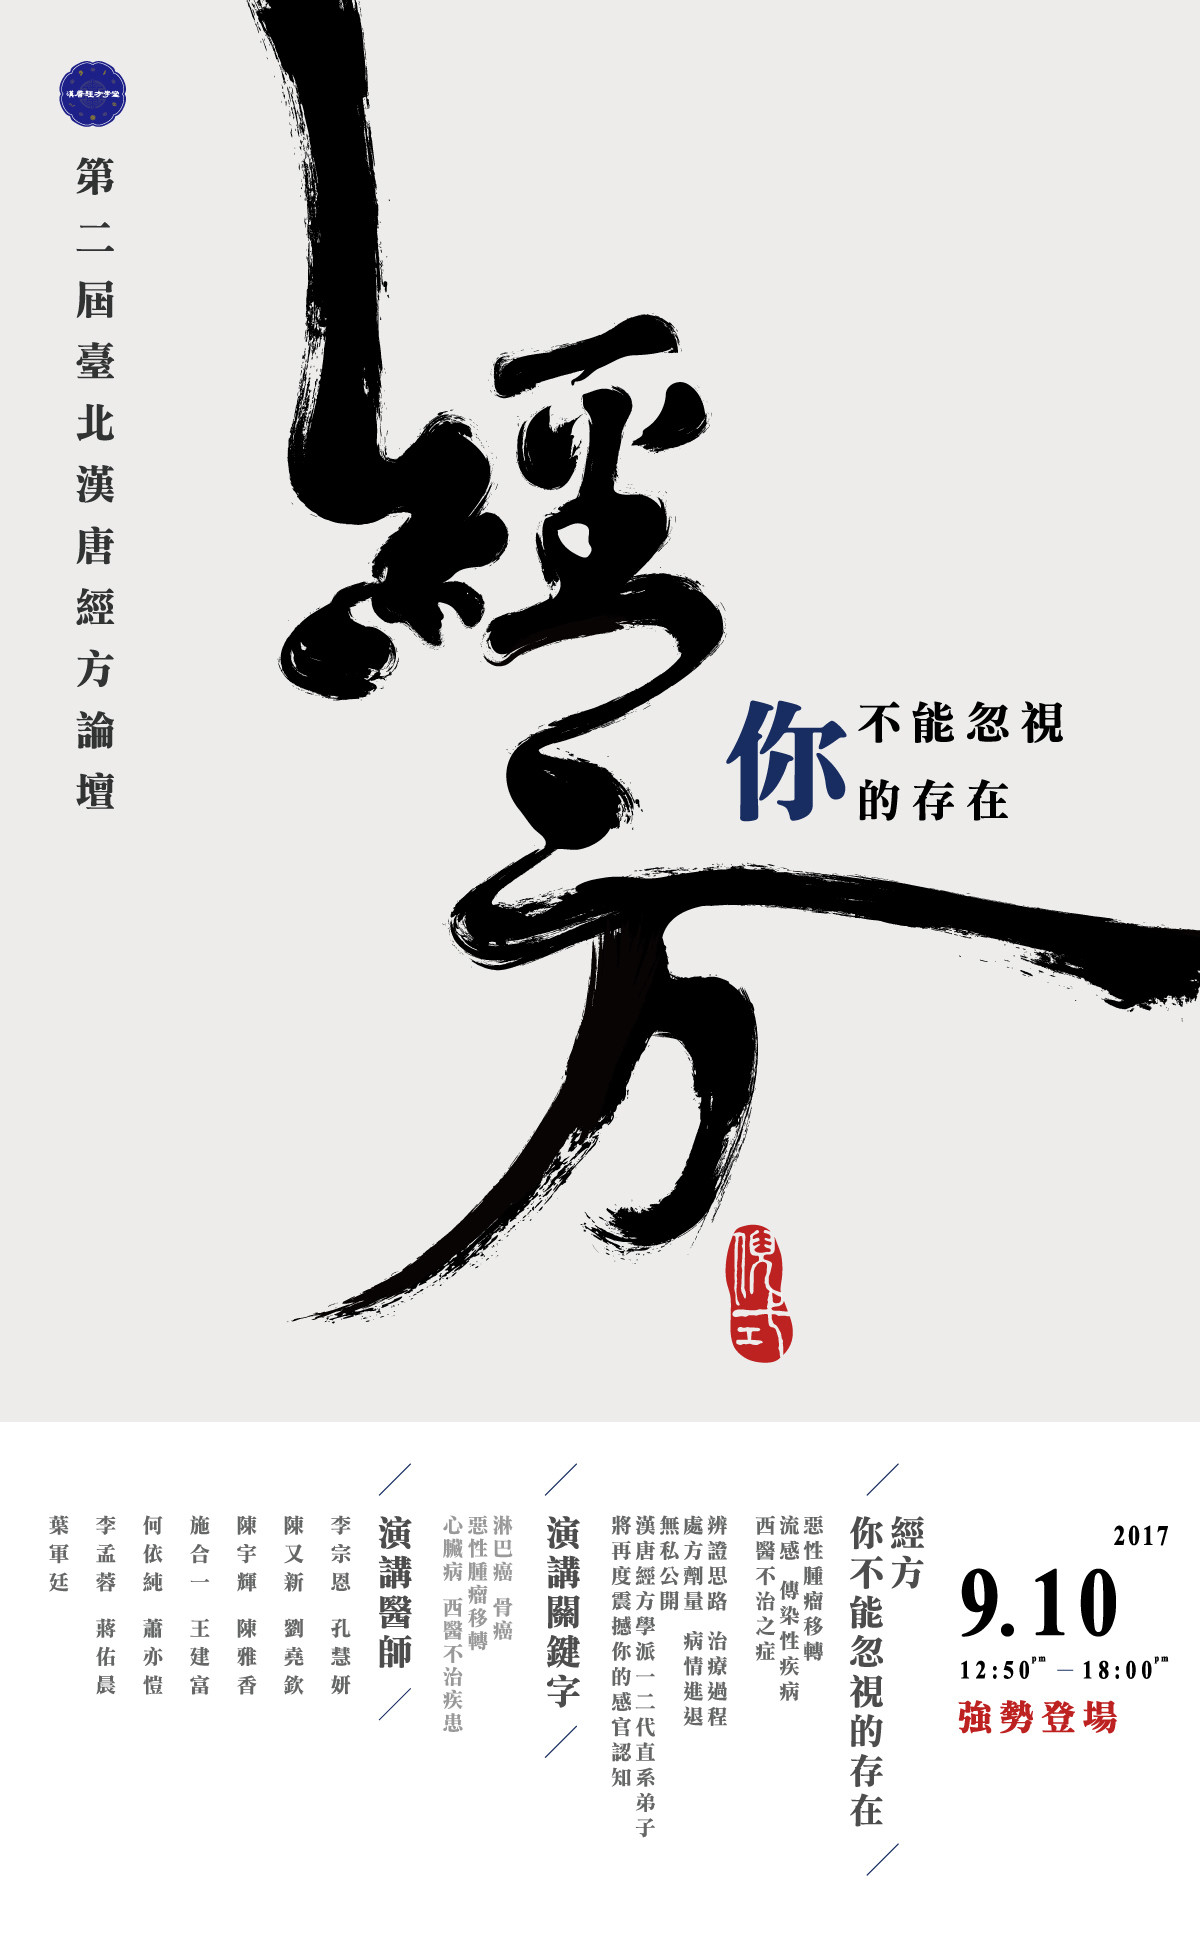 漢唐經方學堂
第二屆臺北漢唐經方論壇
經方
你不能忽視
的存在
倪式
2017
9.10
12:50pm—18:00pm
強勢登場
經方
你不能忽視的存在
惡性腫瘤移轉
流感 傳染性疾病
西醫不治之症
辨證思路 治療過程
處方劑量 病情進退
無私公開
漢唐經方學派一二代直系弟子
將再度震撼你的感官認知
演講關鍵字
淋巴癌 骨癌
惡性腫瘤移轉
心臟病 西醫不治疾患
演講醫師
李宗恩 孔慧妍
陳又新 劉堯欽
陳宇輝 陳雅香
施合一 王建富
何依純 蕭亦愷
李孟蓉 蔣佑晨
葉軍廷